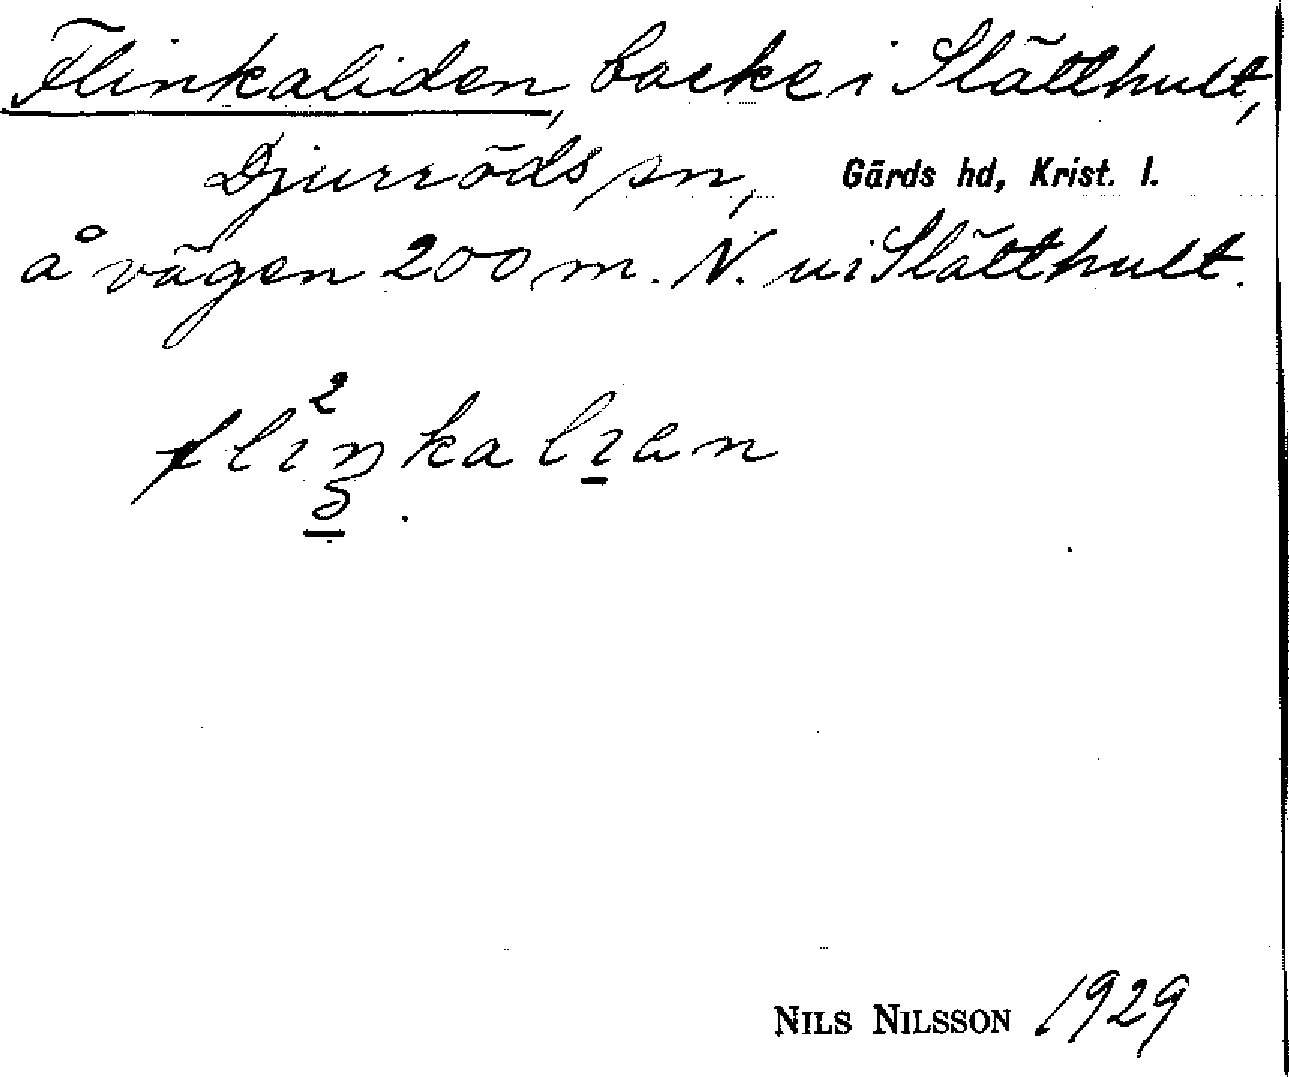 Flinkaliden, backe i Slätthult,
Djurröds sn, Gärds hd, Krist. l.
å vägen 200 m. N. ui Slätthult.
2
flinkalian
NILS NILSSON 1929